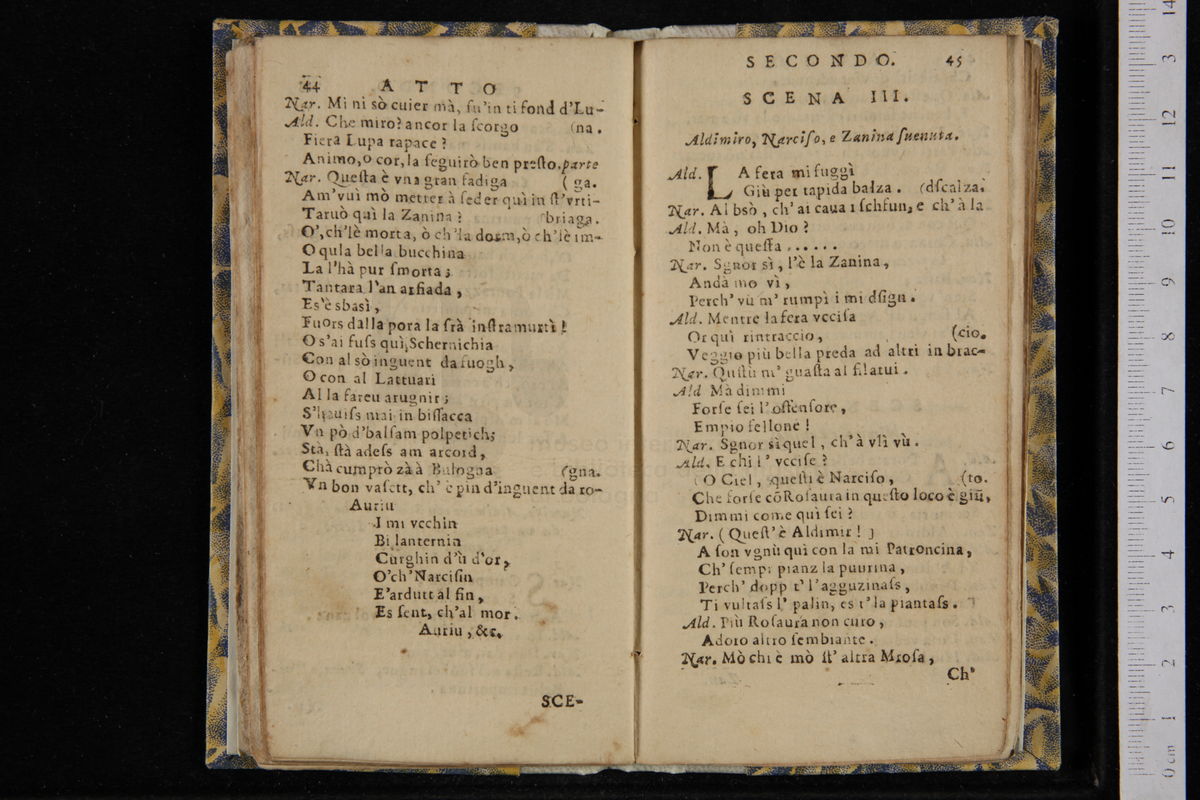 44 ATTO
Nar. Mi ni sò cuier mà, fu'in ti fond d'Lu-
Ald. Che miro? ancor la scorgo (na.
Fiera Lupa rapace?
Animo, o cor, la seguirò ben presto. parte
Nar. Questa è vna gran fadiga (ga.
Am'vuì mò metter à seder quì in st'vrti-
Taruò quì la Zanina? (briaga.
O', ch'lè morta, ò ch'la dorm, ò ch'lè im-
O qula bella bucchina
La l'hà pur smorta;
Tantara l'an arfiada,
Es'è sbasì,
Fuors dalla pora la srà instramurtì!
O s'ai fuss quì, Schernichia
Con al sò inguent da fuogh,
O con al Lattuari
Al la fareu arugnir;
S'l'hauiss mai in bissacca
Vn pò d'balsam polpetich;
Stà, stà adess am arcord,
Chà cumprò zà à Bulogna (gna.
Vn bon vasett, ch'è pin d'inguent da ro-
Auriu
I mi vcchin
Bi lanternin
Curghin d'ù d'or,
O'ch'Narcisin
E'ardutt al fin,
Es sent, ch'al mor.
Auriu, &c.
SCE-
SECONDO. 45
SCENA III.
Aldimiro, Narciso, e Zanina suenuta.
Ald. LA fera mi fuggì
Giù per rapida balza. (dscalza.
Nar. Al bsò, ch'ai caua i schfun, e ch'à la
Ald. Mà, oh Dio?
Non è questa......
Nar. Sgnor sì, l'è la Zanina,
Andà mo vì,
Perch' vù m' rumpì i mi dsign.
Ald. Mentre la fera vccisa
Or quì rintraccio, (cio.
Veggio più bella preda ad altri in brac-
Nar. Quistù m' guasta al filatui.
Ald Mà dimmi
Forse sei l'offensore,
Empio fellone!
Nar. Sgnor sì quel, ch'à vlì vù.
Ald. E chi l'vccise?
(O Ciel, questi è Narciso, (to.
Che forse cõ Rosaura in questo loco è giũ,
Dimmi come quì sei?
Nar. (Quest'è Aldimir!)
A son vgnù quì con la mi Patroncina,
Ch' semp, pianz la puurina,
Perch' dopp t' l'agguzinass,
Ti vultass l' palin, es t'la piantass.
Ald. Più Rosaura non curo,
Adoro altro sembiante.
Nar. Mò chi è mò st' altra Mrosa,
Ch'